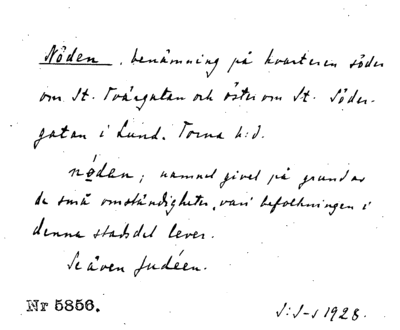 Nöden, benämning på kvarteren söder
om St. Tvärgatan och öster om St. Söder-
gatan i Lund. Torna h:d.
nǿdan; namnet givet på grund av
de små omständigheter, vari befolkningen i
denna stadsdel lever.
Se även Judéen.
Nr 5856.
S:S-s 1928.